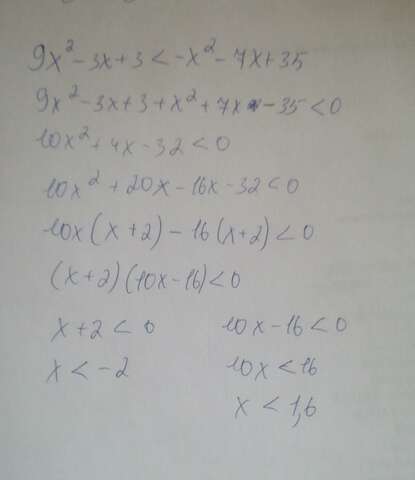 9x² - 3x + 3 < -x² - 7x + 35
9x² - 3x + 3 + x² + 7x - 35 < 0
10x² + 4x - 32 < 0
10x² + 20x - 16x - 32 < 0
10x(x+2) - 16(x+2) < 0
(x+2)(10x-16) < 0
x + 2 < 0 10x - 16 < 0
x < -2 10x < 16
x < 1,6